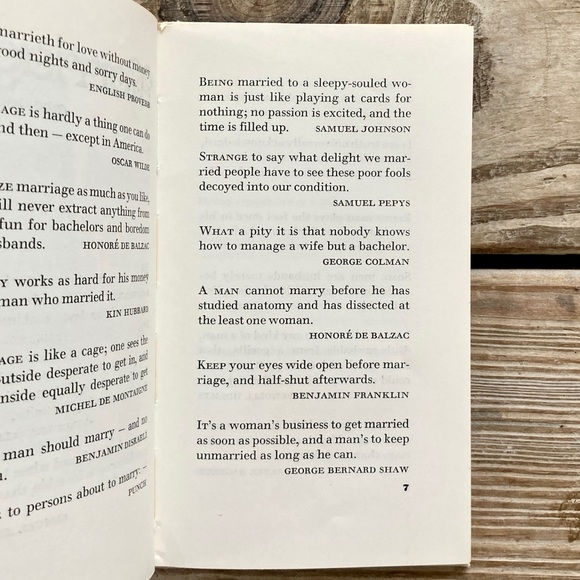 marrieth for love without money
ood nights and sorry days.
ENGLISH PROVERB
AGE is hardly a thing one can do
nd then — except in America.
OSCAR WILDE
ZE marriage as much as you like,
ill never extract anything from
fun for bachelors and boredom
sbands. HONORÉ DE BALZAC
Y works as hard for his money
man who married it.
KIN HUBBARD
AGE is like a cage; one sees the
outside desperate to get in, and
nside equally desperate to get
MICHEL DE MONTAIGNE
man should marry — and no
n. BENJAMIN DISRAELI
to persons about to marry: —
PUNCH
BEING married to a sleepy-souled wo-
man is just like playing at cards for
nothing; no passion is excited, and the
time is filled up. SAMUEL JOHNSON
STRANGE to say what delight we mar-
ried people have to see these poor fools
decoyed into our condition.
SAMUEL PEPYS
WHAT a pity it is that nobody knows
how to manage a wife but a bachelor.
GEORGE COLMAN
A MAN cannot marry before he has
studied anatomy and has dissected at
the least one woman.
HONORÉ DE BALZAC
KEEP your eyes wide open before mar-
riage, and half-shut afterwards.
BENJAMIN FRANKLIN
IT'S a woman's business to get married
as soon as possible, and a man's to keep
unmarried as long as he can.
GEORGE BERNARD SHAW
7